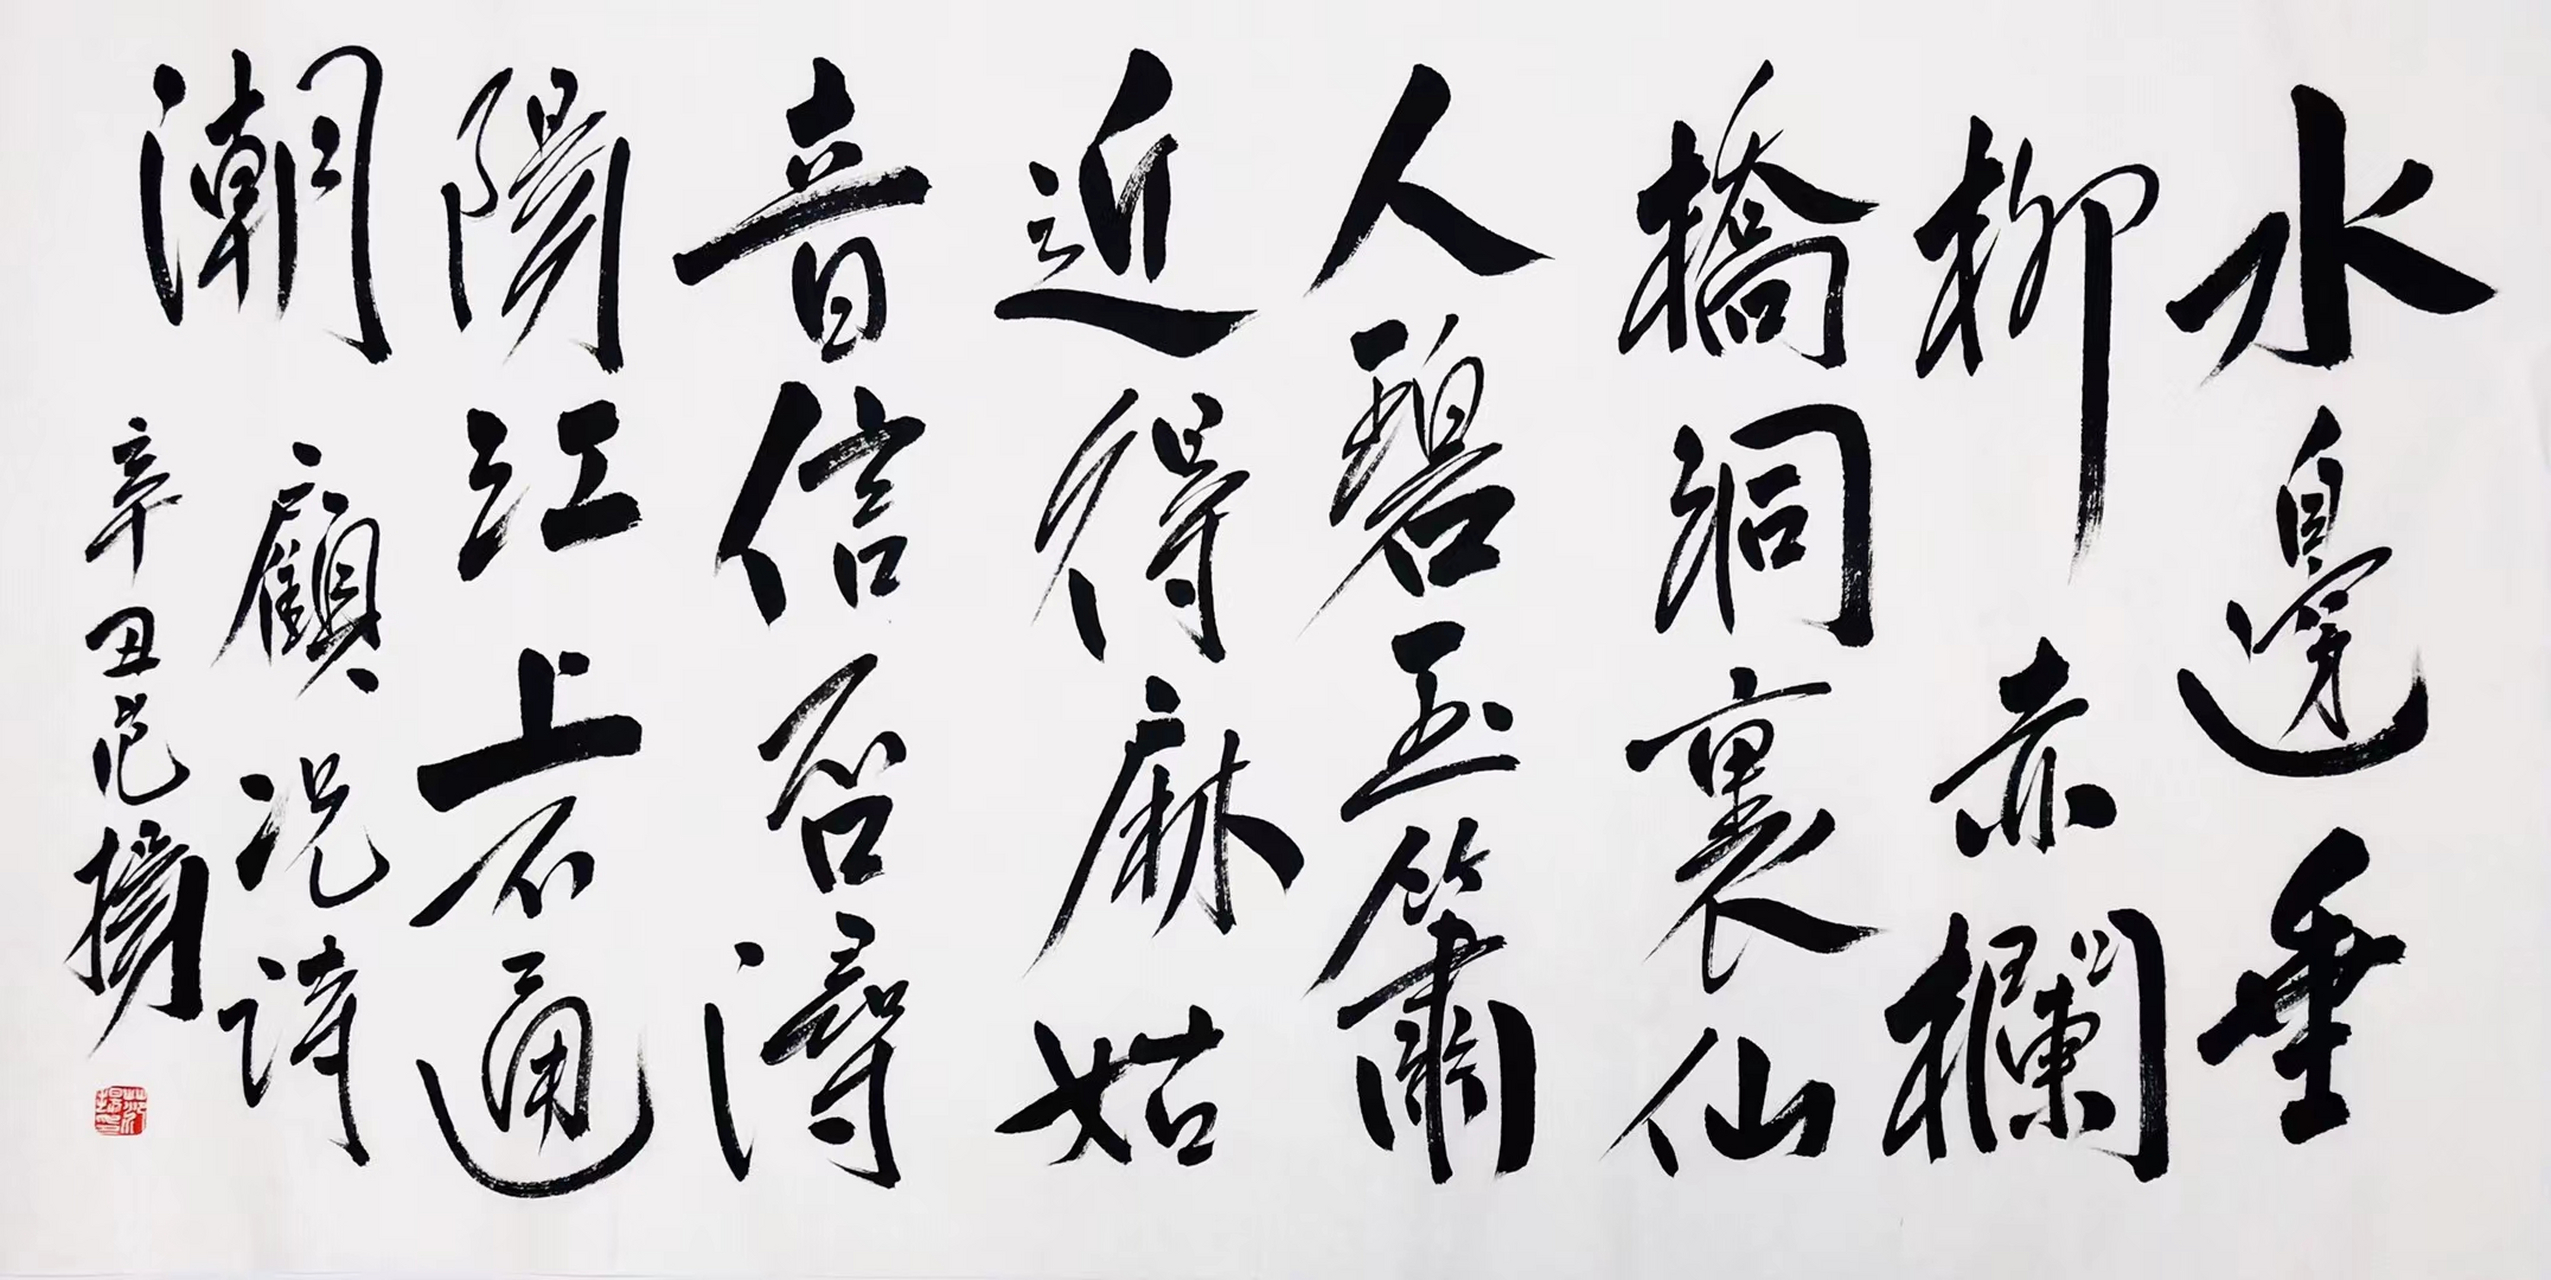 水邊垂
柳赤欄
橋洞裏仙
人碧玉簫
近得麻姑
音信否潯
陽江上不通
潮
顧況詩
辛丑范揚